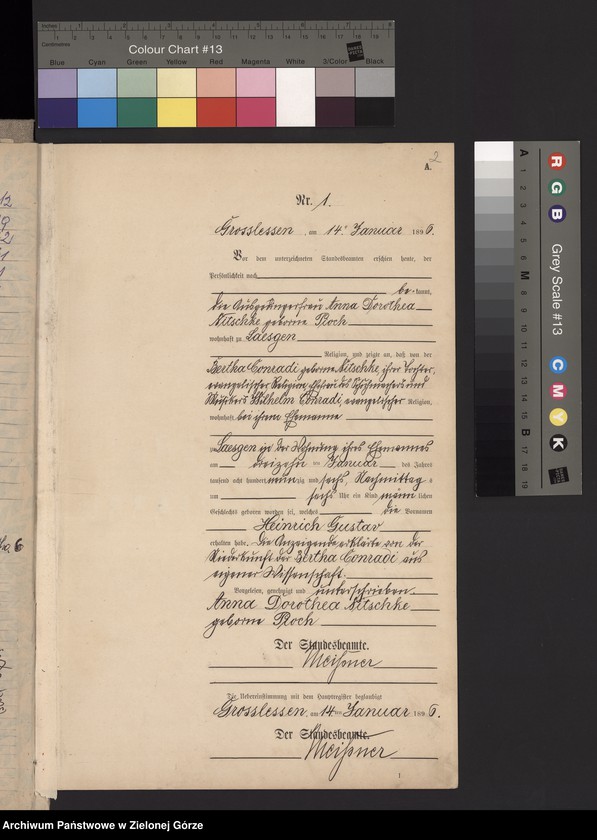 Inches
Centimetres
Colour Chart #13
Blue Cyan Green Yellow Red Magenta White 3/Color Black
2
A.
Nr. 1.
Grosslessen, am 14. Januar 1896.
Vor dem unterzeichneten Standesbeamten erschien heute, der
Persönlichkeit nach
be kannt,
die Ausgedingerfrau Anna Dorothea
Nitschke geborne Proch
wohnhaft zu Laesgen
Religion, und zeigte an, daß von der
Bertha Conradi geborne Nitschke, ihrer Tochter,
evangelischer Religion, Ehefrau des Schuhmachers und
Musikers Wilhelm Conradi, evangelischer Religion,
wohnhaft bei ihrem Ehemanne
zu Laesgen in der Wohnung ihres Ehemannes
am dreizehn ten Januar des Jahres
tausend acht hundert neunzig und sechs, Nachmittag s
um sechs Uhr ein Kind männ lichen
Geschlechts geboren worden sei, welches die Vornamen
Heinrich Gustav
erhalten habe. Die Anzeigende erklärte, von der
Niederkunft der Bertha Conradi aus
eigener Wissenschaft.
Vorgelesen, genehmigt und unterschrieben.
Anna Dorothea Nitschke
geborne Proch
Der Standesbeamte.
Meißner
Die Uebereinstimmung mit dem Hauptregister beglaubigt
Grosslessen, am 14 ten Januar 1896.
Der Standesbeamte.
Meißner
1
12
9
2
1
1
6
R G B
Grey Scale #13
C M Y K
A 1 2 3 4 5 6 M 8 9 10 11 12 13 14 15 B 17 18 19
Archiwum Państwowe w Zielonej Górze